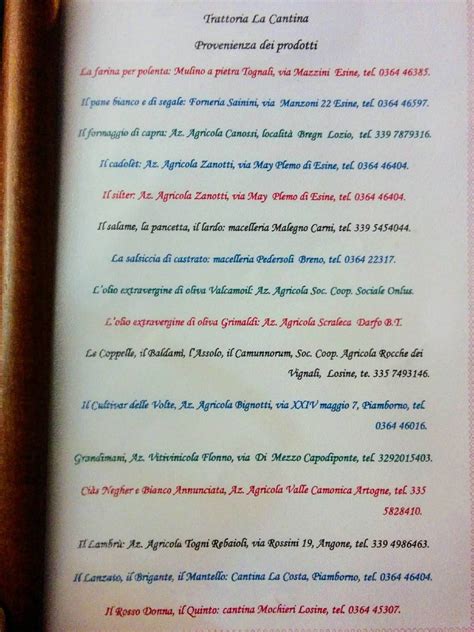 Trattoria La Cantina
Provenienza dei prodotti
La farina per polenta: Mulino a pietra Tognali, via Mazzini Esine, tel. 0364 46385.
Il pane bianco e di segale: Forneria Sainini, via Manzoni 22 Esine, tel. 0364 46597.
Il formaggio di capra: Az. Agricola Canossi, località Bregn Lozio, tel. 339 7879316.
Il cadolèt: Az. Agricola Zanotti, via May Plemo di Esine, tel. 0364 46404.
Il silter: Az. Agricola Zanotti, via May Plemo di Esine, tel. 0364 46404.
Il salame, la pancetta, il lardo: macelleria Malegno Carni, tel. 339 5454044.
La salsiccia di castrato: macelleria Pedersoli Breno, tel. 0364 22317.
L'olio extravergine di oliva Valcamoil: Az. Agricola Soc. Coop. Sociale Onlus.
L'olio extravergine di oliva Grimaldi: Az. Agricola Scraleca Darfo B.T.
Le Coppelle, il Baldamì, l'Assolo, il Camunnorum, Soc. Coop. Agricola Rocche dei
Vignali, Losine, te. 335 7493146.
Il Cultivar delle Volte, Az. Agricola Bignotti, via XXIV maggio 7, Piamborno, tel.
0364 46016.
Grandimani, Az. Vitivinicola Flonno, via Di Mezzo Capodiponte, tel. 3292015403.
Ciàs Negher e Bianco Annunciata, Az. Agricola Valle Camonica Artogne, tel. 335
5828410.
Il Lambrù: Az. Agricola Togni Rebaioli, via Rossini 19, Angone, tel. 339 4986463.
Il Lanzaio, il Brigante, il Mantello: Cantina La Costa, Piamborno, tel. 0364 46404.
Il Rosso Donna, il Quinto: cantina Mochieri Losine, tel. 0364 45307.